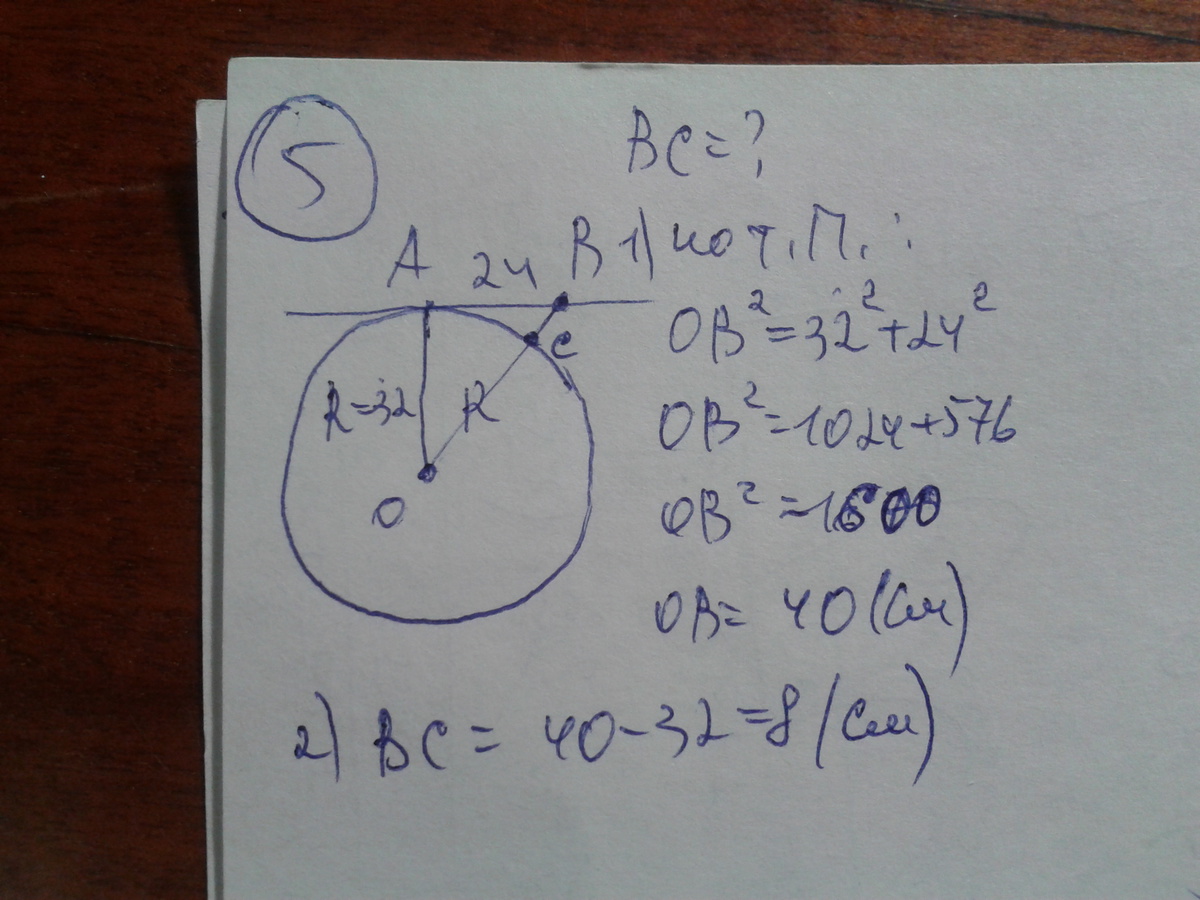 5
BC = ?
A 24 B
1) по т. П. :
OB² = 32² + 24²
C
R = 32 R
OB² = 1024 + 576
O
OB² = 1600
OB = 40 (см)
2) BC = 40 - 32 = 8 (см)